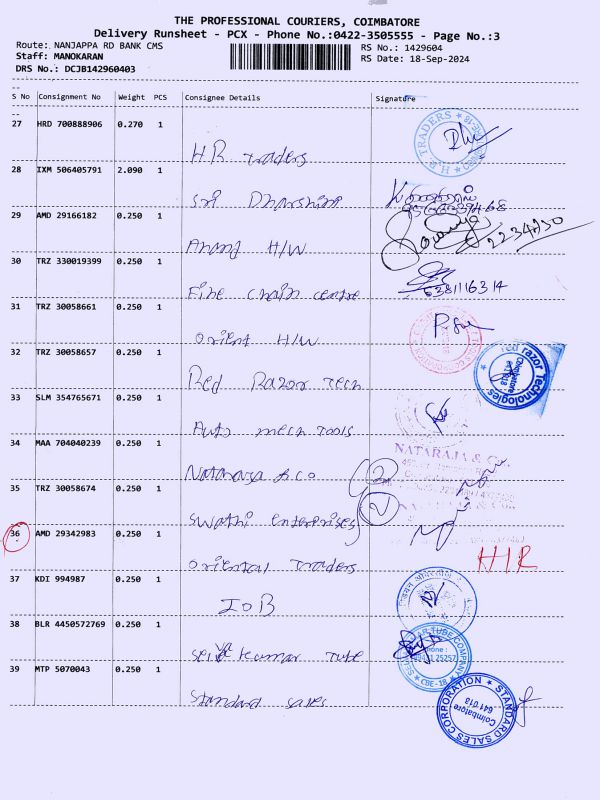 THE PROFESSIONAL COURIERS, COIMBATORE
Delivery Runsheet - PCX - Phone No.:0422-3505555 - Page No.:3
Route: NANJAPPA RD BANK CMS
RS No.: 1429604
Staff: MANOKARAN
RS Date: 18-Sep-2024
DRS No.: DCJB142960403
S No Consignment No Weight PCS Consignee Details Signature
27 HRD 700888906 0.270 1
H.R Traders
28 IXM 506405791 2.090 1
Sri Dharshini
29 AMD 29166182 0.250 1
Anand H/W
30 TRZ 330019399 0.250 1
Fine chain centre
6381116314
31 TRZ 30058661 0.250 1
Orient H/W
32 TRZ 30058657 0.250 1
Red Razor Tech
Red razor Technologies
Coimbatore
33 SLM 354765671 0.250 1
Auto mech Tools
34 MAA 704040239 0.250 1
NATARAJA & Co.
Nataraja & co
35 TRZ 30058674 0.250 1
Swathi enterprises
36 AMD 29342983 0.250 1
Oriental Traders
HIR
37 KDI 994987 0.250 1
IOB
38 BLR 4450572769 0.250 1
Kumar Tube
TUBE COMPANY
CBE-18
39 MTP 5070043 0.250 1
Standard sales
STANDARD SALES CORPORATION
Coimbatore
641 018